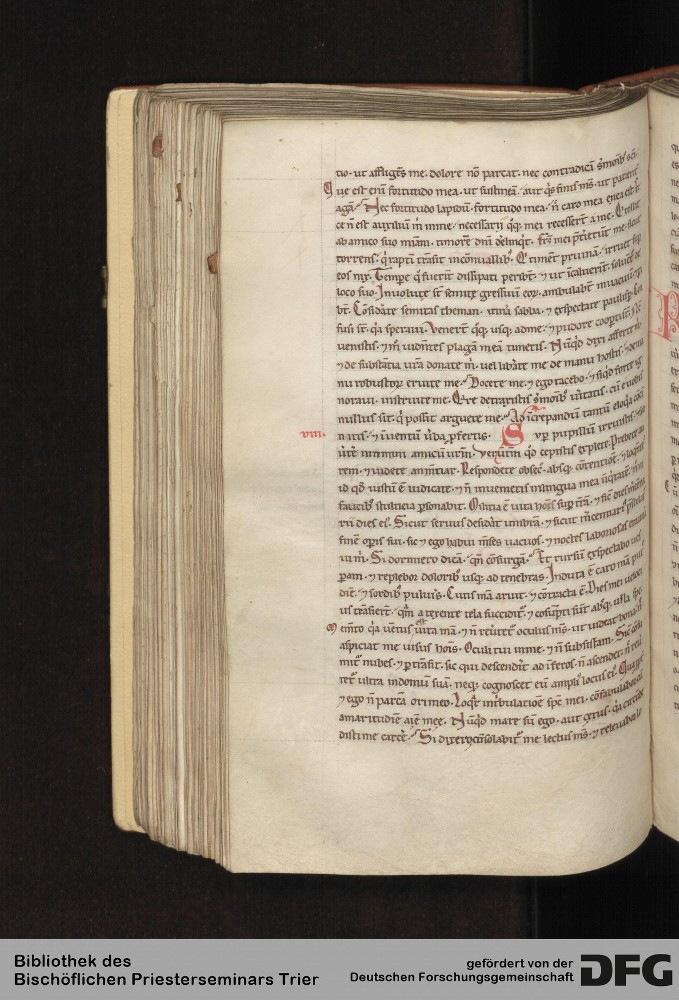 tio. ut affligēs me. dolore nō parcat. nec contradicā s̄monib; sc̄i.
Que est eni fortitudo mea. ut sustineā. aut q̄s finis m̄s. ut patient̄
agā. Nec fortitudo lapidū. fortitudo mea. n̄ caro mea enea est. Ec
ce n̄ est auxiliū m̄ in me. necessarij q̄q; mei recesserт̄ a me. Q tollit
ab amico suo m̄iam. timorē dn̄i delinqt. frs̄ mei p̄t̄ierūt me. sicut
torrens. q̄ raptī trāsit in cōuallib;. Q timēt pruinā. irruet sup
eos nix. Tempe q̄ fuerīt dissipati peribt̄. ⁊ ut īcaluerīt. soluēt̄ de
loco suo. Inuolute st̄ semite gressuū eoꝝ. ambulabt̄ in uacuū. ⁊ p̄i
bt̄. Cōsidate semitas theman. itin̄a sabba. ⁊ exspectate paulisp̄. Cō
fusi st̄. q̄a speraui. Venert̄ q̄q; usq; ad me. ⁊ pudore cooperti st̄. Nc̄
uenistis. ⁊ m̄ uidentes plagā meā timetis. Nūqd dixi afferte m̄.
⁊ de substātia ur̄a donate m̄. uel libate me de manu hostis. ⁊ de ma
nu robustoꝝ eruite me. Docete me. ⁊ ego tacebo. ⁊ siqd forte ig
noraui. instruite me. Qre detraxistis s̄monib; u̅itatis. cū e uobis
nullus sit. q̄ possit arguere me. Ad īcrepandū tantū eloq̄a cōci
viii.
natis. ⁊ ī uentū u̅ba p̄fertis. Sup̄ pupillū irruitis. ⁊ sub
ūte nitimini amicū ur̄m. Verūtm̄ qd cepistis explete. Prebete au
rem. ⁊ uidete an m̄tiar. Respondete obsec̄. absq; cōtentiōe. ⁊ loqntes
id qd iustū ē iudicate. ⁊ n̄ inuenietis in lingua mea īiqtatē. n̄ in
faucib; stulticia p̄sonabit. Militia ē uita hois̄ sup̄ t̄rā. ⁊ sic̄ dies m̄cenna
rii dies ei. Sicut seruus desidat umbrā. ⁊ sicut m̄cennari p̄stolat̄
finē op̄is sui. sic ⁊ ego habui m̄ses uacuos. ⁊ noctes laboriosas enum̄a
ui m̄. Si dormiero dicā. qn̄ cōsurgā. Et rursū exspectabo ues
p̄am. ⁊ replebor dolorib; usq; ad tenebras. Induta ē caro mā put̄
diē. ⁊ sordib; pulu̅is. Cutis mā aruit. ⁊ cōtracta ē. Dies mei uelocı
us trāsiert̄. qm̄ a texente tela succidit̄. ⁊ cōsūpti sūt absq; ulla spe.
Mem̄to q̄a uēntus ē uita mā. ⁊ n̄ reu̅tet̄ oculus m̄s. ut uideat bona. n̄
aspiciat me uisus hois̄. Oculi tui in me. ⁊ n̄ subsistam. Sic̄ cōsu
mit̄ nubes. ⁊ p̄trāsit. sic qui descendit̄ ad īferos. n̄ ascendet. n̄ reu̅
tet̄ ultra in domū suā. neq; cognoscet eū ampli̅ locus ei̅. Quapp̄t̄
⁊ ego n̄ parcā ori meo. Loqr̄ in t̄bulatiōe sp̄c mei. cōfabulabor cū
amaritudine aīe mee. Nūqd mare sū ego. aut cetus. q̄a circūde
disti me carc̄e. Si dixero cōsolabit̄ me lectus m̄s. ⁊ releuabor lo
Bibliothek des
Bischöflichen Priesterseminars Trier
gefördert von der
Deutschen Forschungsgemeinschaft
DFG